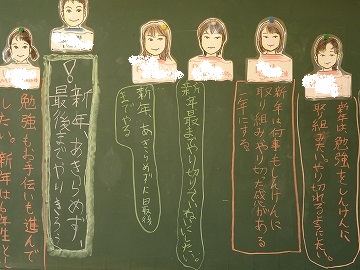 新年は、勉強をしんけんに
取り組みたい。やり切れるようにしたい。
新年は何事もしんけんに
取り組みやり切った感がある
一年にする。
新年最までやり切って
新年、あきらめずに最後
までやる
新年、あきらめず、
最後までやりきろう
勉強もお手伝いも進んで
したい。新年は6年生とし